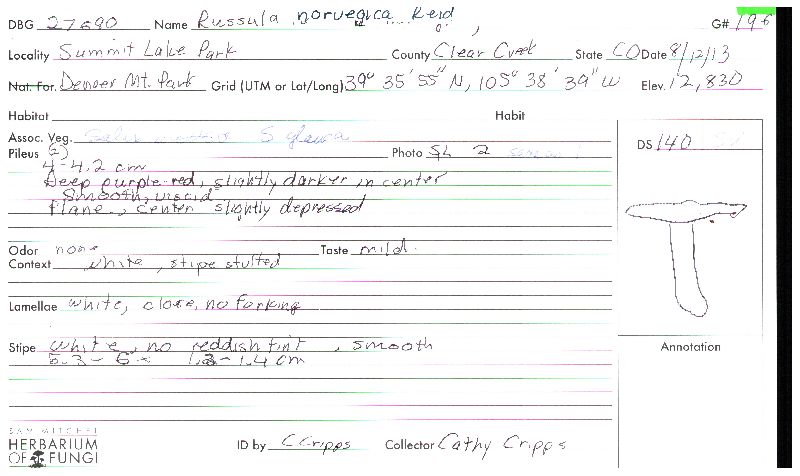 DBG 27690 Name Russula norvegica Reid G# 196
Locality Summit Lake Park County Clear Creek State CO Date 8/12/13
Nat. For. Denver Mt. Park Grid (UTM or Lat/Long) 39° 35' 55" N, 105° 38' 39" W Elev. 12,830
Habitat Habit
Assoc. Veg. Salix S glauca
Pileus (2) Photo SL 2
DS 140
4-4.2 cm
Deep purple-red, slightly darker in center
Smooth, viscid
Plane, center slightly depressed
Odor none Taste mild.
Context white, stipe stuffed
Lamellae white, close, no forking
Stipe white, no reddish tint, smooth
5.3-6 × 1.3-1.4 cm
Annotation
SAM MITCHEL
HERBARIUM
OF FUNGI
ID by C Cripps Collector Cathy Cripps